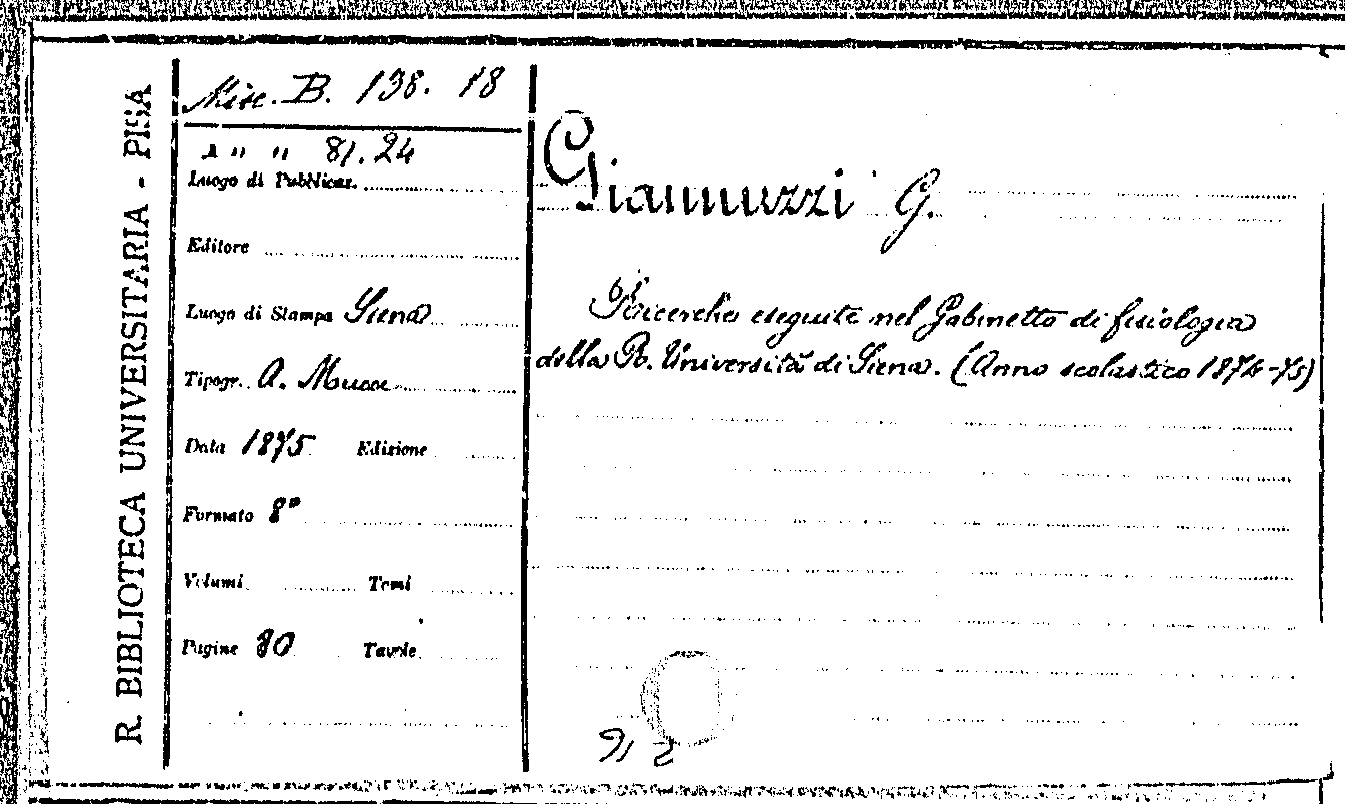 R. BIBLIOTECA UNIVERSITARIA - PISA
Misc. B. 138. 18
" " 81.24
Luogo di Pubblicaz.
Editore
Luogo di Stampa Siena
Tipogr. A. Mucci
Data 1875 Edizione
Formato 8°
Volumi Tomi
Pagine 80 Tavole
Giannuzzi G.
Ricerche eseguite nel Gabinetto di fisiologia
della R. Università di Siena. (Anno scolastico 1874-75)